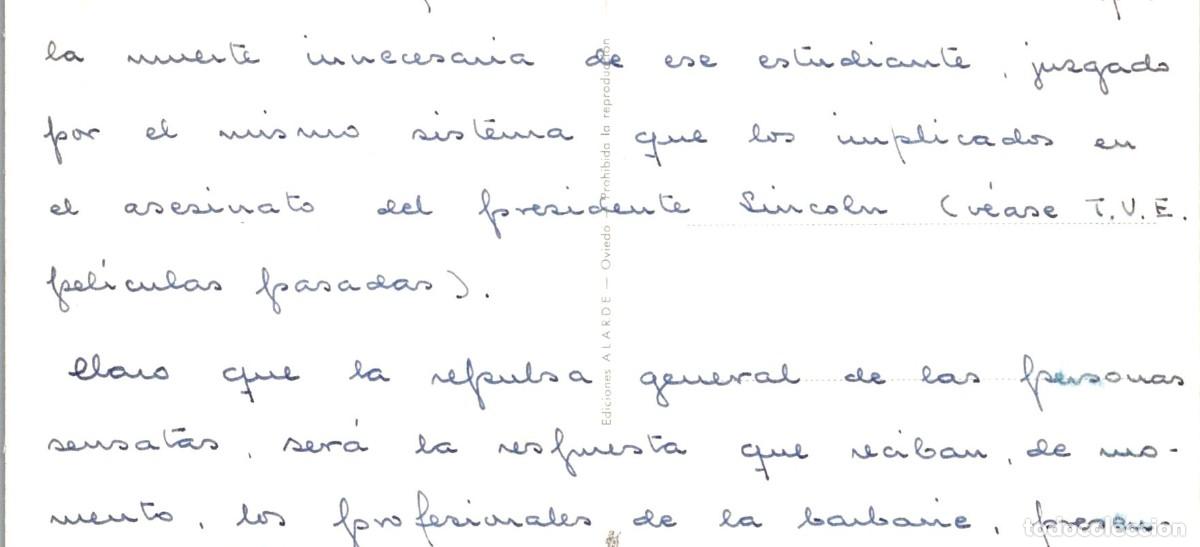 la muerte innecesaria de ese estudiante, juzgado
por el mismo sistema que los implicados en
el asesinato del presidente Lincoln (véase T.V.E.
películas pasadas).
Claro que la repulsa general de las personas
sensatas, será la respuesta que reciban, de mo-
mento, los profesionales de la barbarie,
Ediciones ALARDE — Oviedo — Prohibida la reproducción
todocoleccion